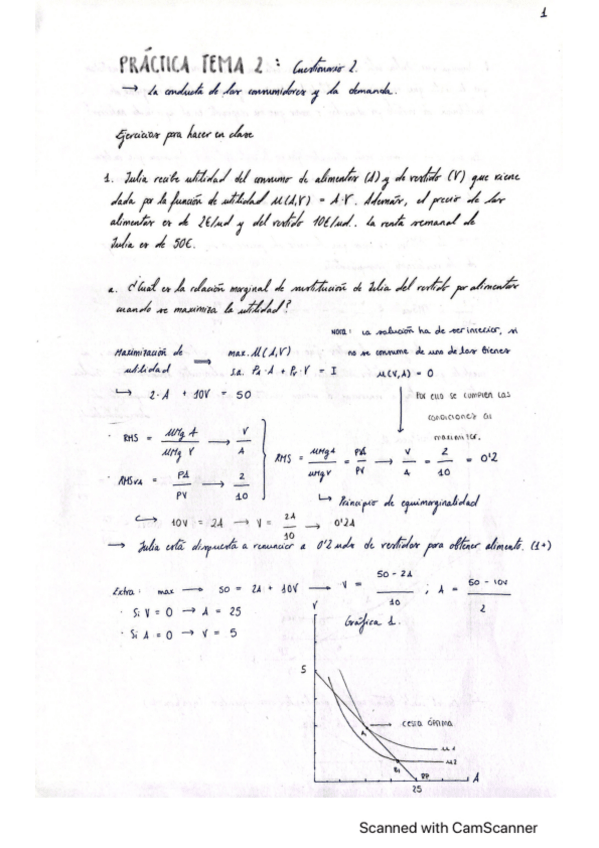 1
PRÁCTICA TEMA 2 : Cuestionario 2.
→ La conducta de los consumidores y la demanda.
Ejercicios para hacer en clase
1. Julia recibe utilidad del consumo de alimentos (A) y de vestido (V) que viene
dada por la función de utilidad U(A,V) = A·V. Además, el precio de los
alimentos es de 2€/ud y del vestido 10€/ud. La renta semanal de
Julia es de 50€.
a. ¿Cuál es la relación marginal de sustitución de Julia del vestido por alimentos
cuando se maximiza la utilidad?
NOTA: La solución ha de ser interior, si
no se consume de uno de los bienes
U(V,A) = 0
Maximización de utilidad → max. U(A,V)
s.a. PA · A + PV · V = I
↳ 2·A + 10V = 50
Por ello se cumplen las
condiciones de
maximizar.
· RMS = UMgA / UMgV → V / A
· RMSVA = PA / PV → 2 / 10
RMS = UMgA / UMgV = PA / PV → V / A = 2 / 10 = 0'2
↳ Principio de equimarginalidad
↳ 10V = 2A → V = 2A / 10 → 0'2A
→ Julia está dispuesta a renunciar a 0'2 uds de vestidos para obtener alimento. (1+)
Extra: max → 50 = 2A + 10V → V = 50 - 2A / 10 ; A = 50 - 10V / 2
· Si V = 0 → A = 25
· Si A = 0 → V = 5
Gráfica 1.
V
5
→ cesta óptima
A1
U1
U2
B1
RP
A
25
Scanned with CamScanner